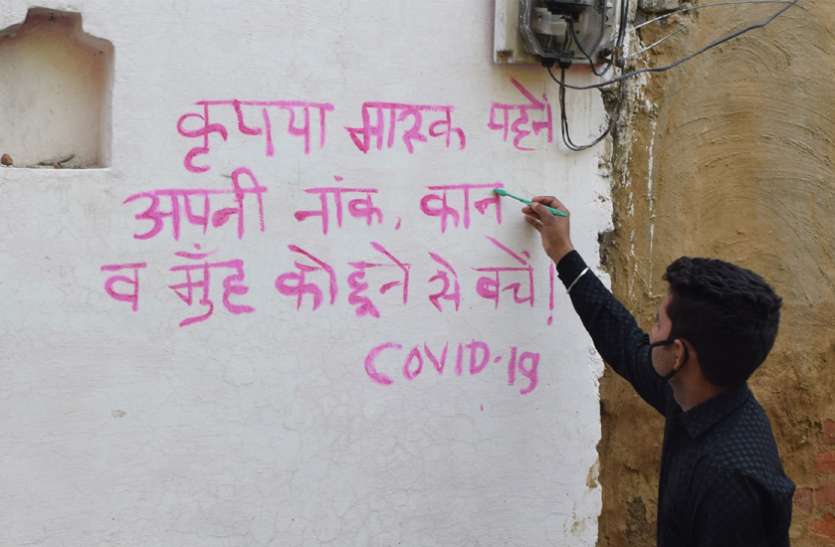 कृपया मास्क पहनें
अपनी नांक, कान
व मुँह को छूने से बचें!
COVID-19